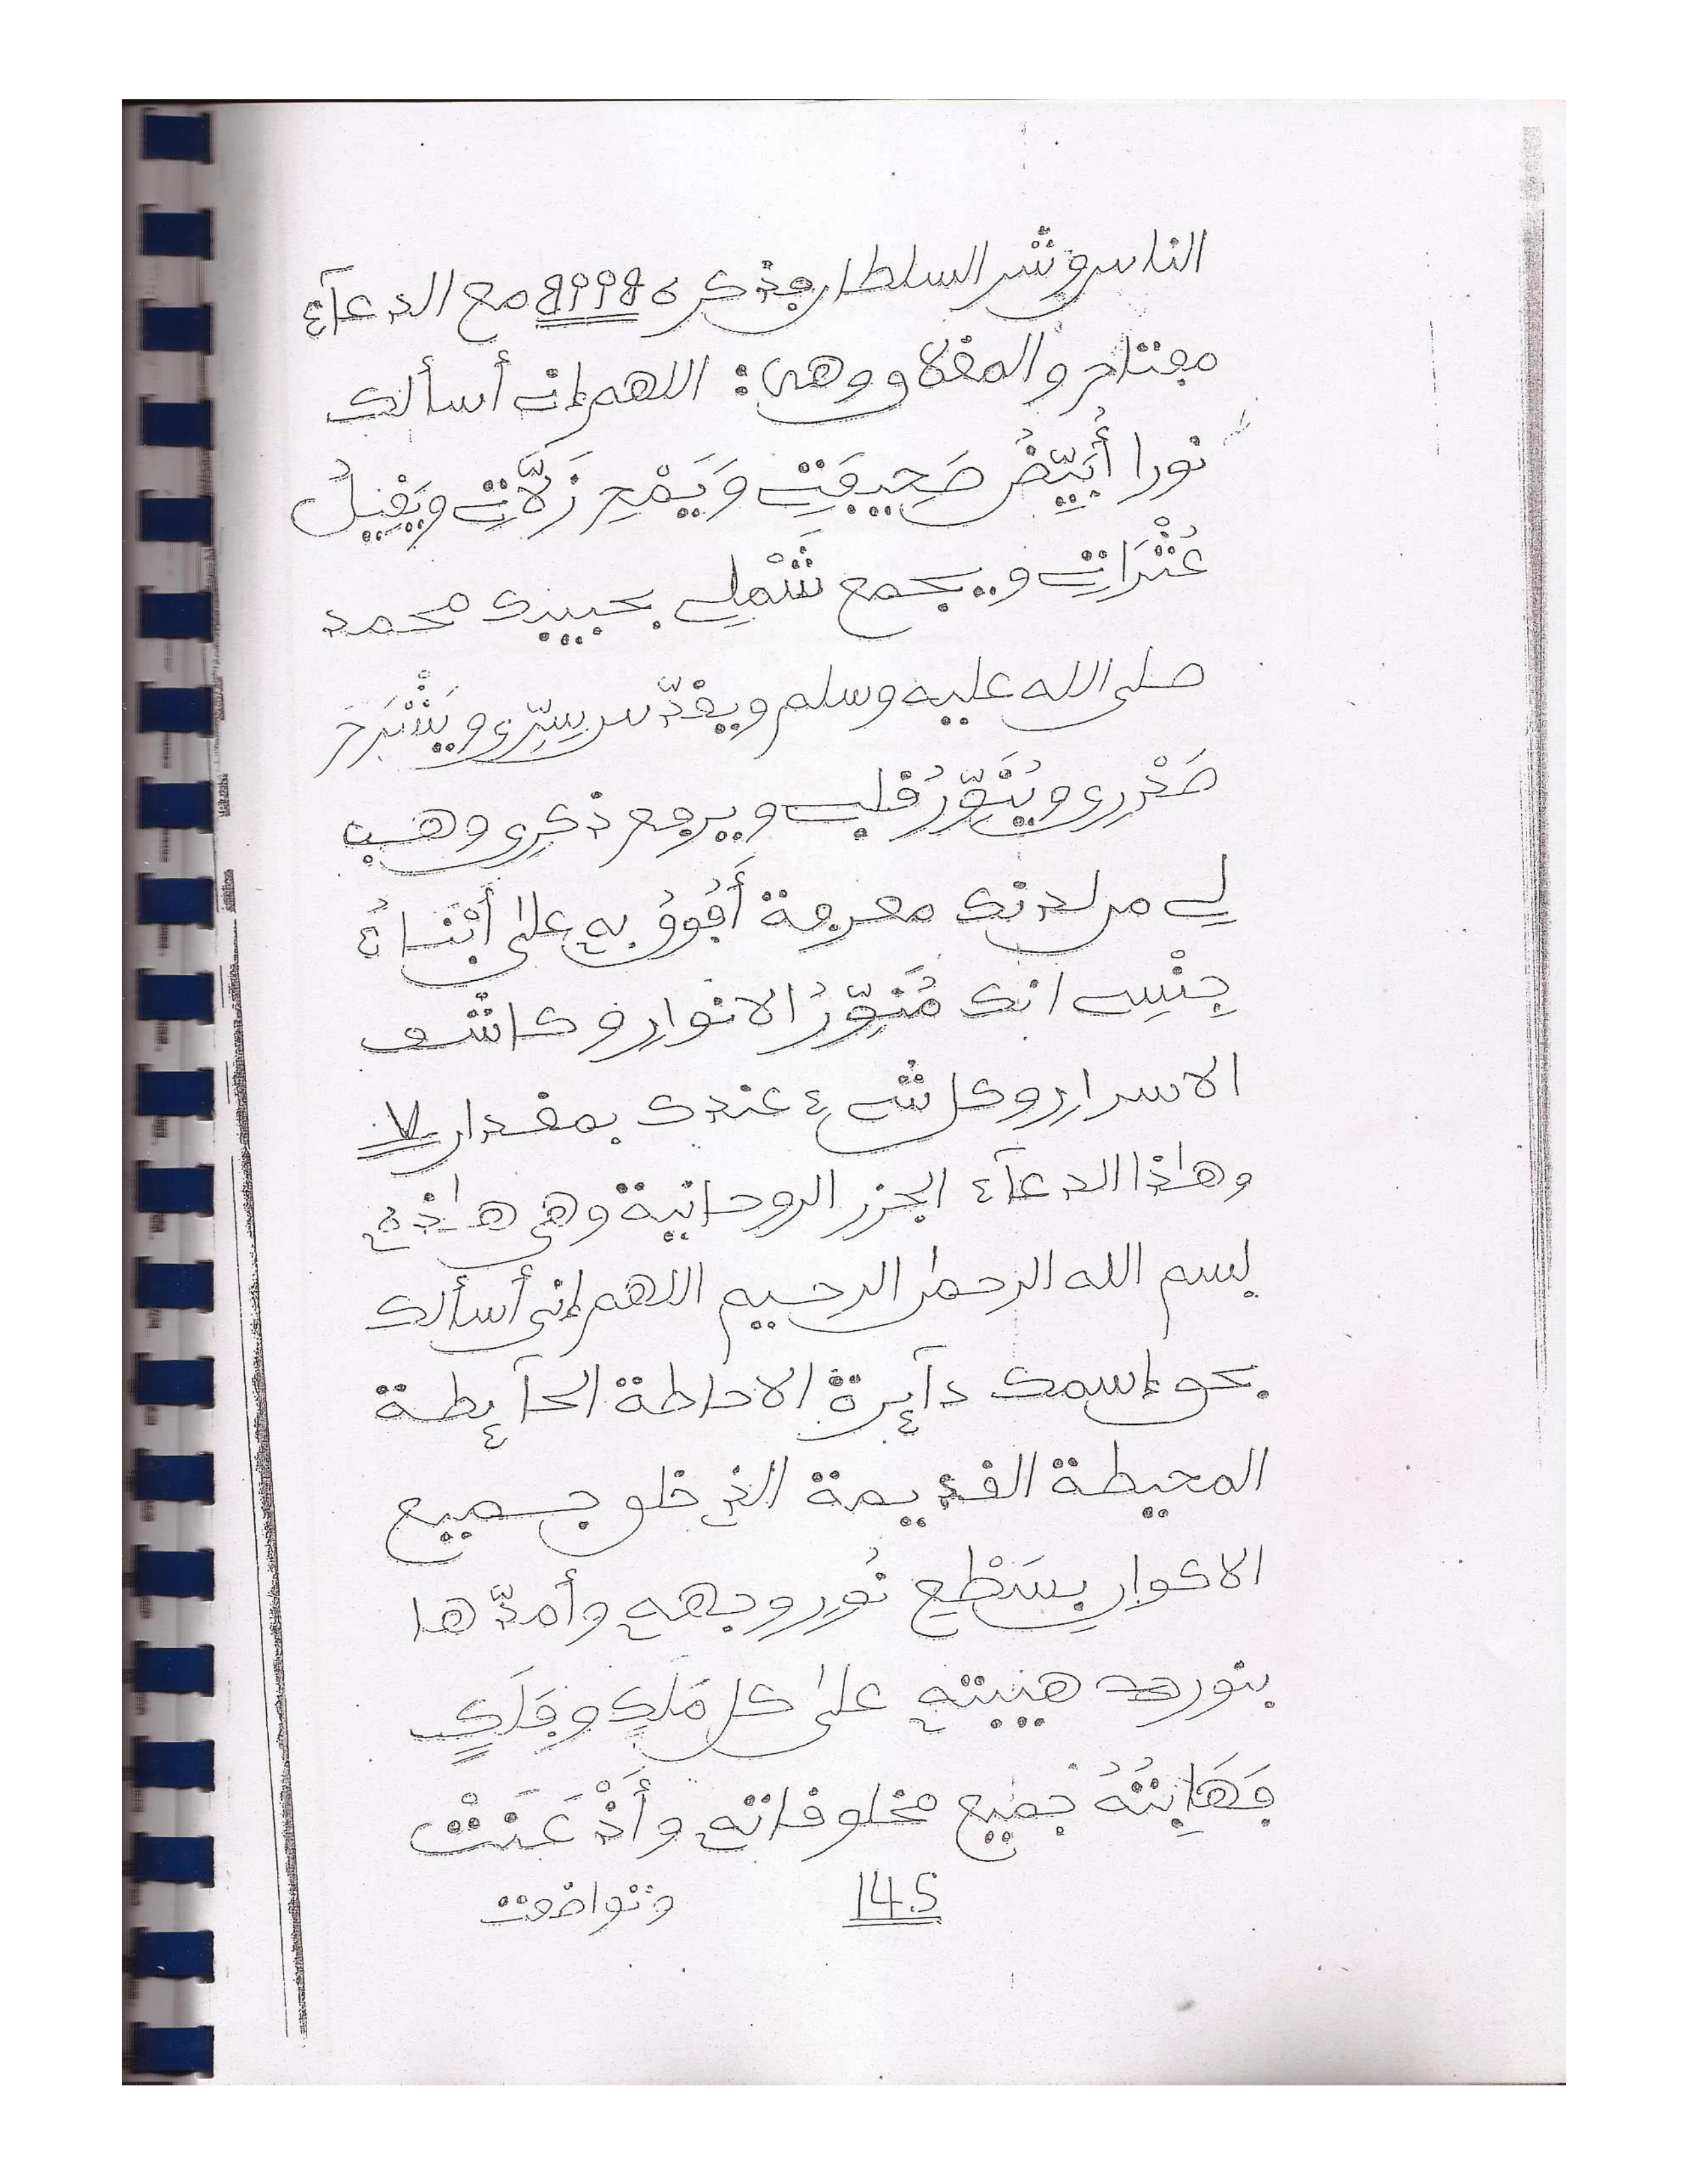 الناس وشر السلطان وذكره 8998 مع الدعآء
مفتاح والمغلاق وهى: اللهم إني أسألك
نورا أُبَيِّضُ صَحِيفَتِي وَيَمْحِ زَلَّاتِي وَيَقِيلُ
عُثْرَاتِي و يجمع شَمْلِي بحبيبك محمد
صلى الله عليه وسلم ويقدّس سِرِّي ويَشْرَحَ
صَدْرِى ويُنَوِّرُ قلبي ويرفع ذكرِى وهب
لي من لدنك معرفة أَفُوقُ بِهِ على أَبْنَاءُ
جِنْسِي انك مُنَوِّرُ الانوار وكاشف
الاسرار وكل شيء عندك بمقدار 7
وهاذا الدعآء الجزر الروحانية وهى هاذه
بسم الله الرحمن الرحيم اللهم إنى أسألك
بحق إسمك دآيرة الاحاطة الحآيطة
المحيطة القديمة الذي خلق جميع
الاكوار بِسَطْعِ نُورِ وجهه وأمدّها
بنور هيبته على كل مَلَكٍ وفَلَكٍ
فَهَابَتْهُ جميع مخلوقاته وأَذْعَنَتْ
145 وتواضعت